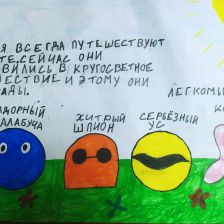 Я ВСЕГДА ПУТЕШЕСТВУЮТ
СЕЙЧАС ОНИ
ВИЛИСЬ В КРУГОСВЕТНОЕ
ЕСТВИЕ И ЭТОМУ ОНИ
АДЫ.
ЛЕГКОМЫ
АДОРНЫЙ
АЛАБУЧА
ХИТРЫЙ
ШПИОН
СЕРЬЁЗНЫЙ
УС
К